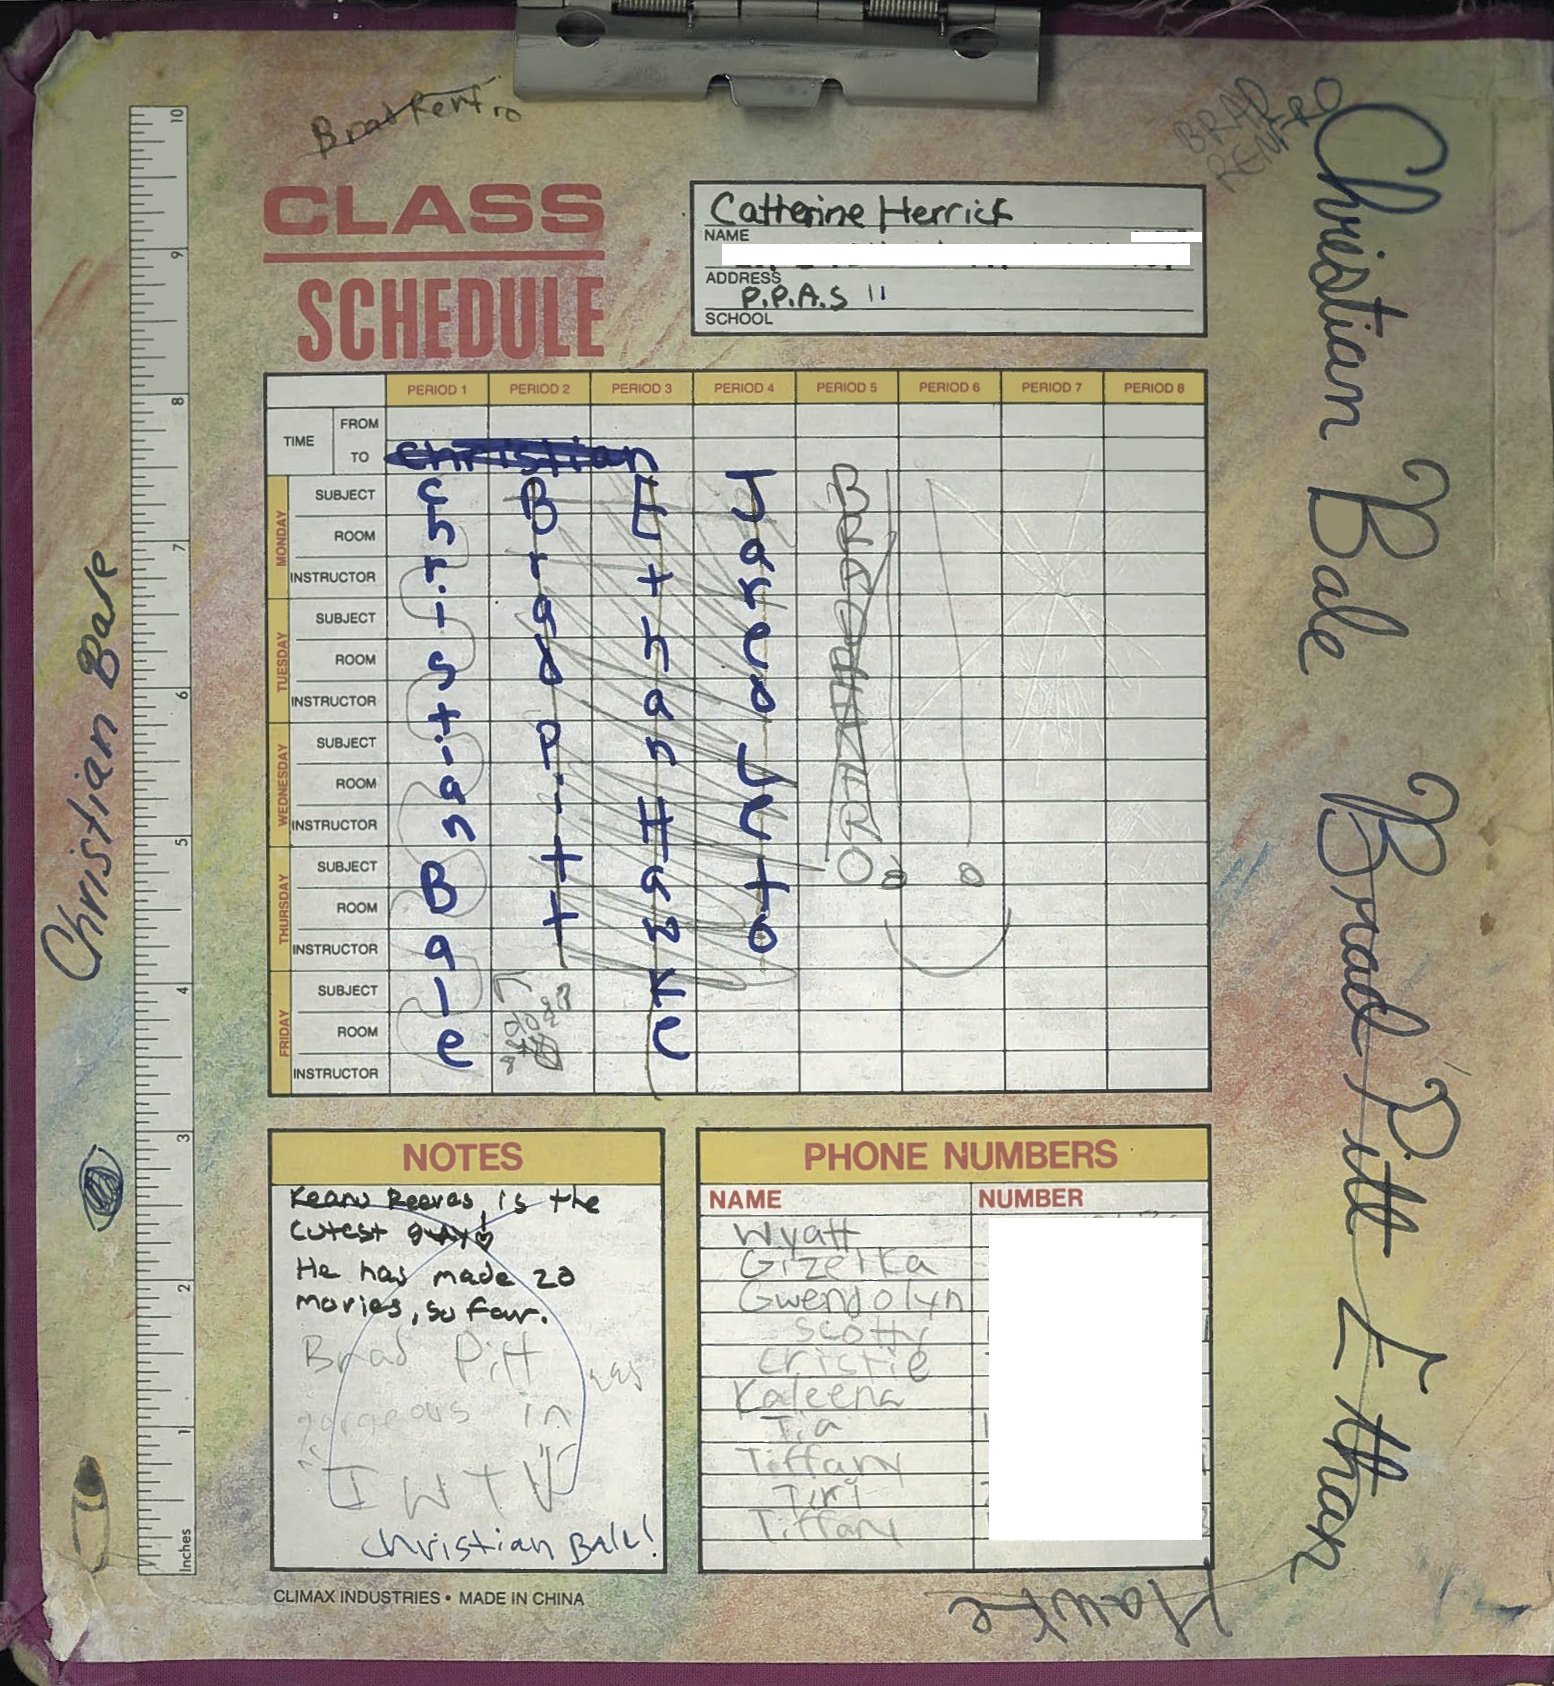 Brad Renfro
BRAD
RENFRO
CLASS
SCHEDULE
Catherine Herrick
NAME
ADDRESS
P.P.A.S 11
SCHOOL
10
9
8
7
6
5
4
3
2
1
Inches
PERIOD 1 PERIOD 2 PERIOD 3 PERIOD 4 PERIOD 5 PERIOD 6 PERIOD 7 PERIOD 8
TIME
FROM
TO
Christian
MONDAY
SUBJECT
ROOM
INSTRUCTOR
TUESDAY
SUBJECT
ROOM
INSTRUCTOR
WEDNESDAY
SUBJECT
ROOM
INSTRUCTOR
THURSDAY
SUBJECT
ROOM
INSTRUCTOR
FRIDAY
SUBJECT
ROOM
INSTRUCTOR
Christian Bale
Brad Pitt
Ethan Hawke
Jared Leto
NOTES
Keanu Reeves, is the
cutest guy!
He has made 20
movies, so far.
Brad Pitt was
gorgeous in
"IWTV"
Christian Bale!
PHONE NUMBERS
NAME NUMBER
Wyatt
Gizelka
Gwendolyn
Scotty
Cristie
Kaleena
Tia
Tiffany
Teri
Tiffany
CLIMAX INDUSTRIES • MADE IN CHINA
Christian Bale
Christian Bale Brad Pitt Ethan
Hawke